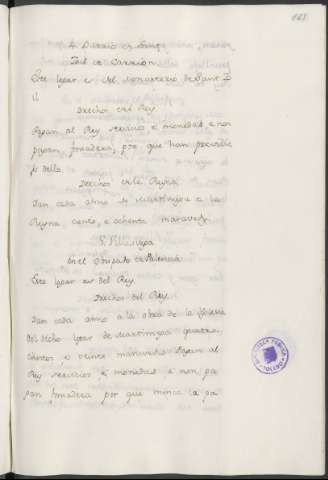 123
Este logar e del monasterio de Sant Z
il
Derechos del Rey
Pagan al Rey servicios e monedas e non
pagan fonsadera, por que han preville
jo dello.
Derechos de la Reyna
Dan cada anno de Martiniega a la
Reyna, ciento, e ochenta maravedis
En el Obispado de Palencia
Este logar es del Rey
Derechos del Rey
Dan cada anno a la obra de la Iglesia
del dicho logar de martiniega quatro
cientos e veinte maravedis Pagan al
Rey servicios e monedas e non pa
gan fonsadera por que nunca la pa
BIBLIOTECA PUBLICA
TOLEDO